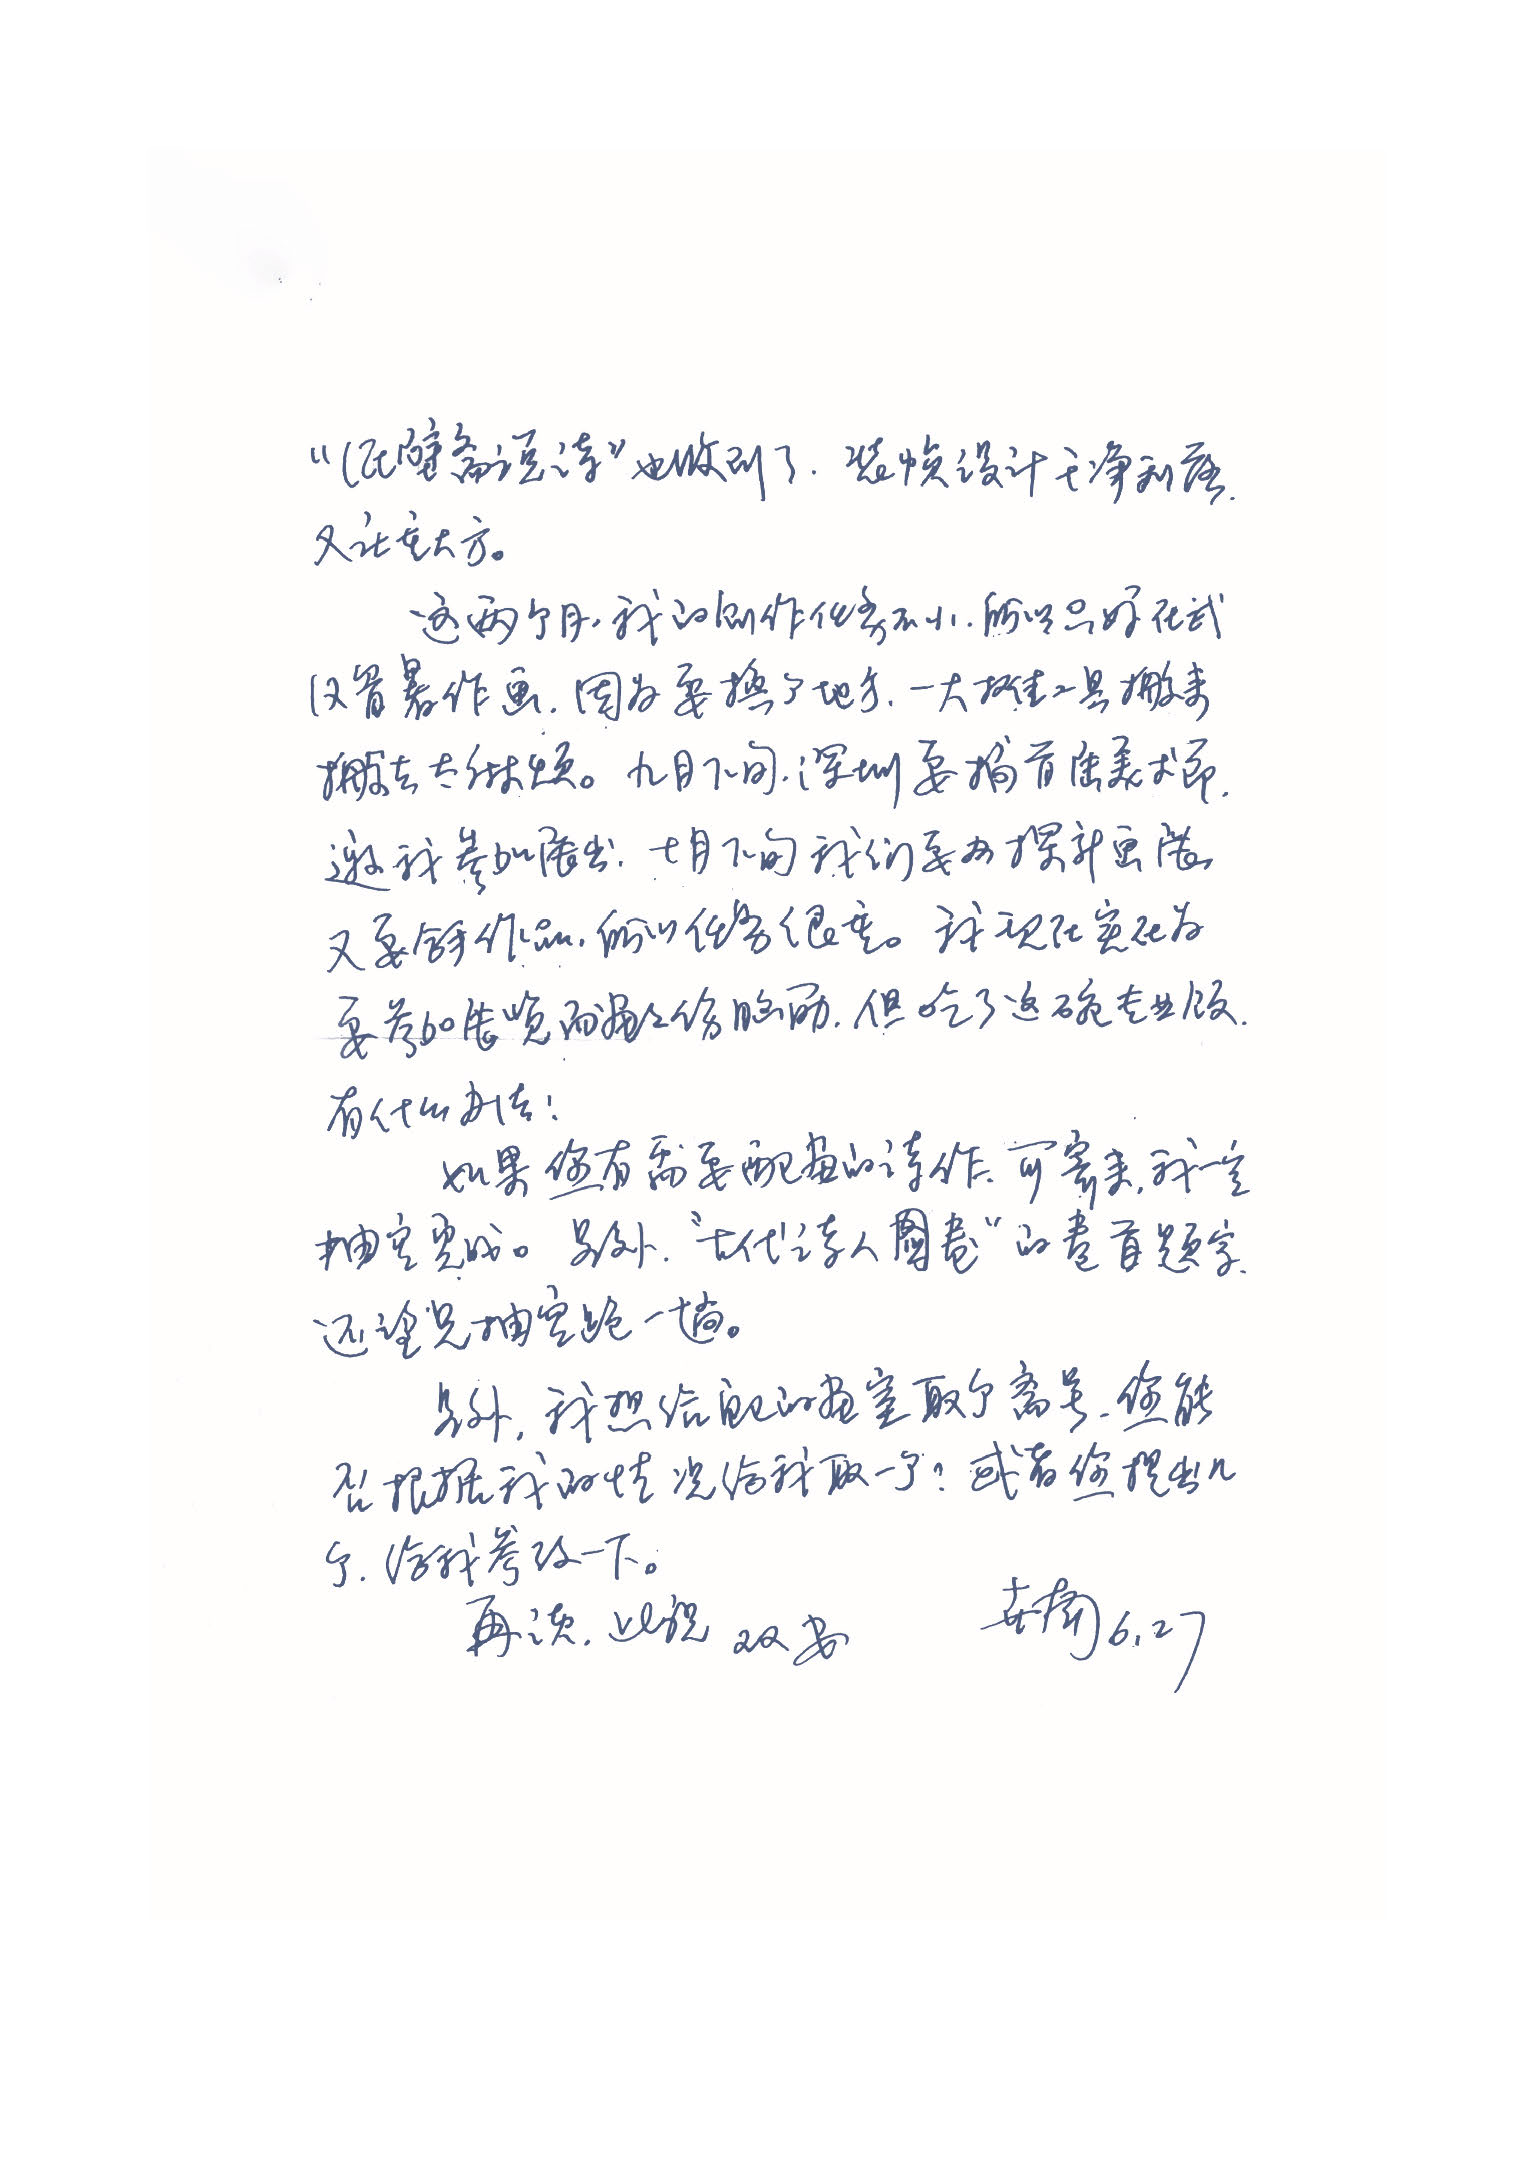 “倚壁斋说诗”也收到了．装帧设计干净利落．
又庄重大方。
这两个月，我的创作任务不小．所以只好在武
汉冒暑作画．因为要换了地方．一大堆工具搬来
搬去太麻烦。九月下旬，深圳要搞首届美术节．
邀我参加展出．十月下旬我们要办探索画展
又要拿作品，所以任务很重。我现在实在为
要参加展览而画之伤脑筋．但吃了这碗专业饭．
有什么办法！
如果您有需要配画的诗作．可寄来，我一定
抽空完成。另外．“古代诗人图卷”的卷首题字．
还望兄抽空跑一趟。
另外，我想给自己的画室取个斋号．您能
否根据我的情况给我取一个？或者您提出几
个．给我参考一下。
再谈．此祝 双安 世南 6.27